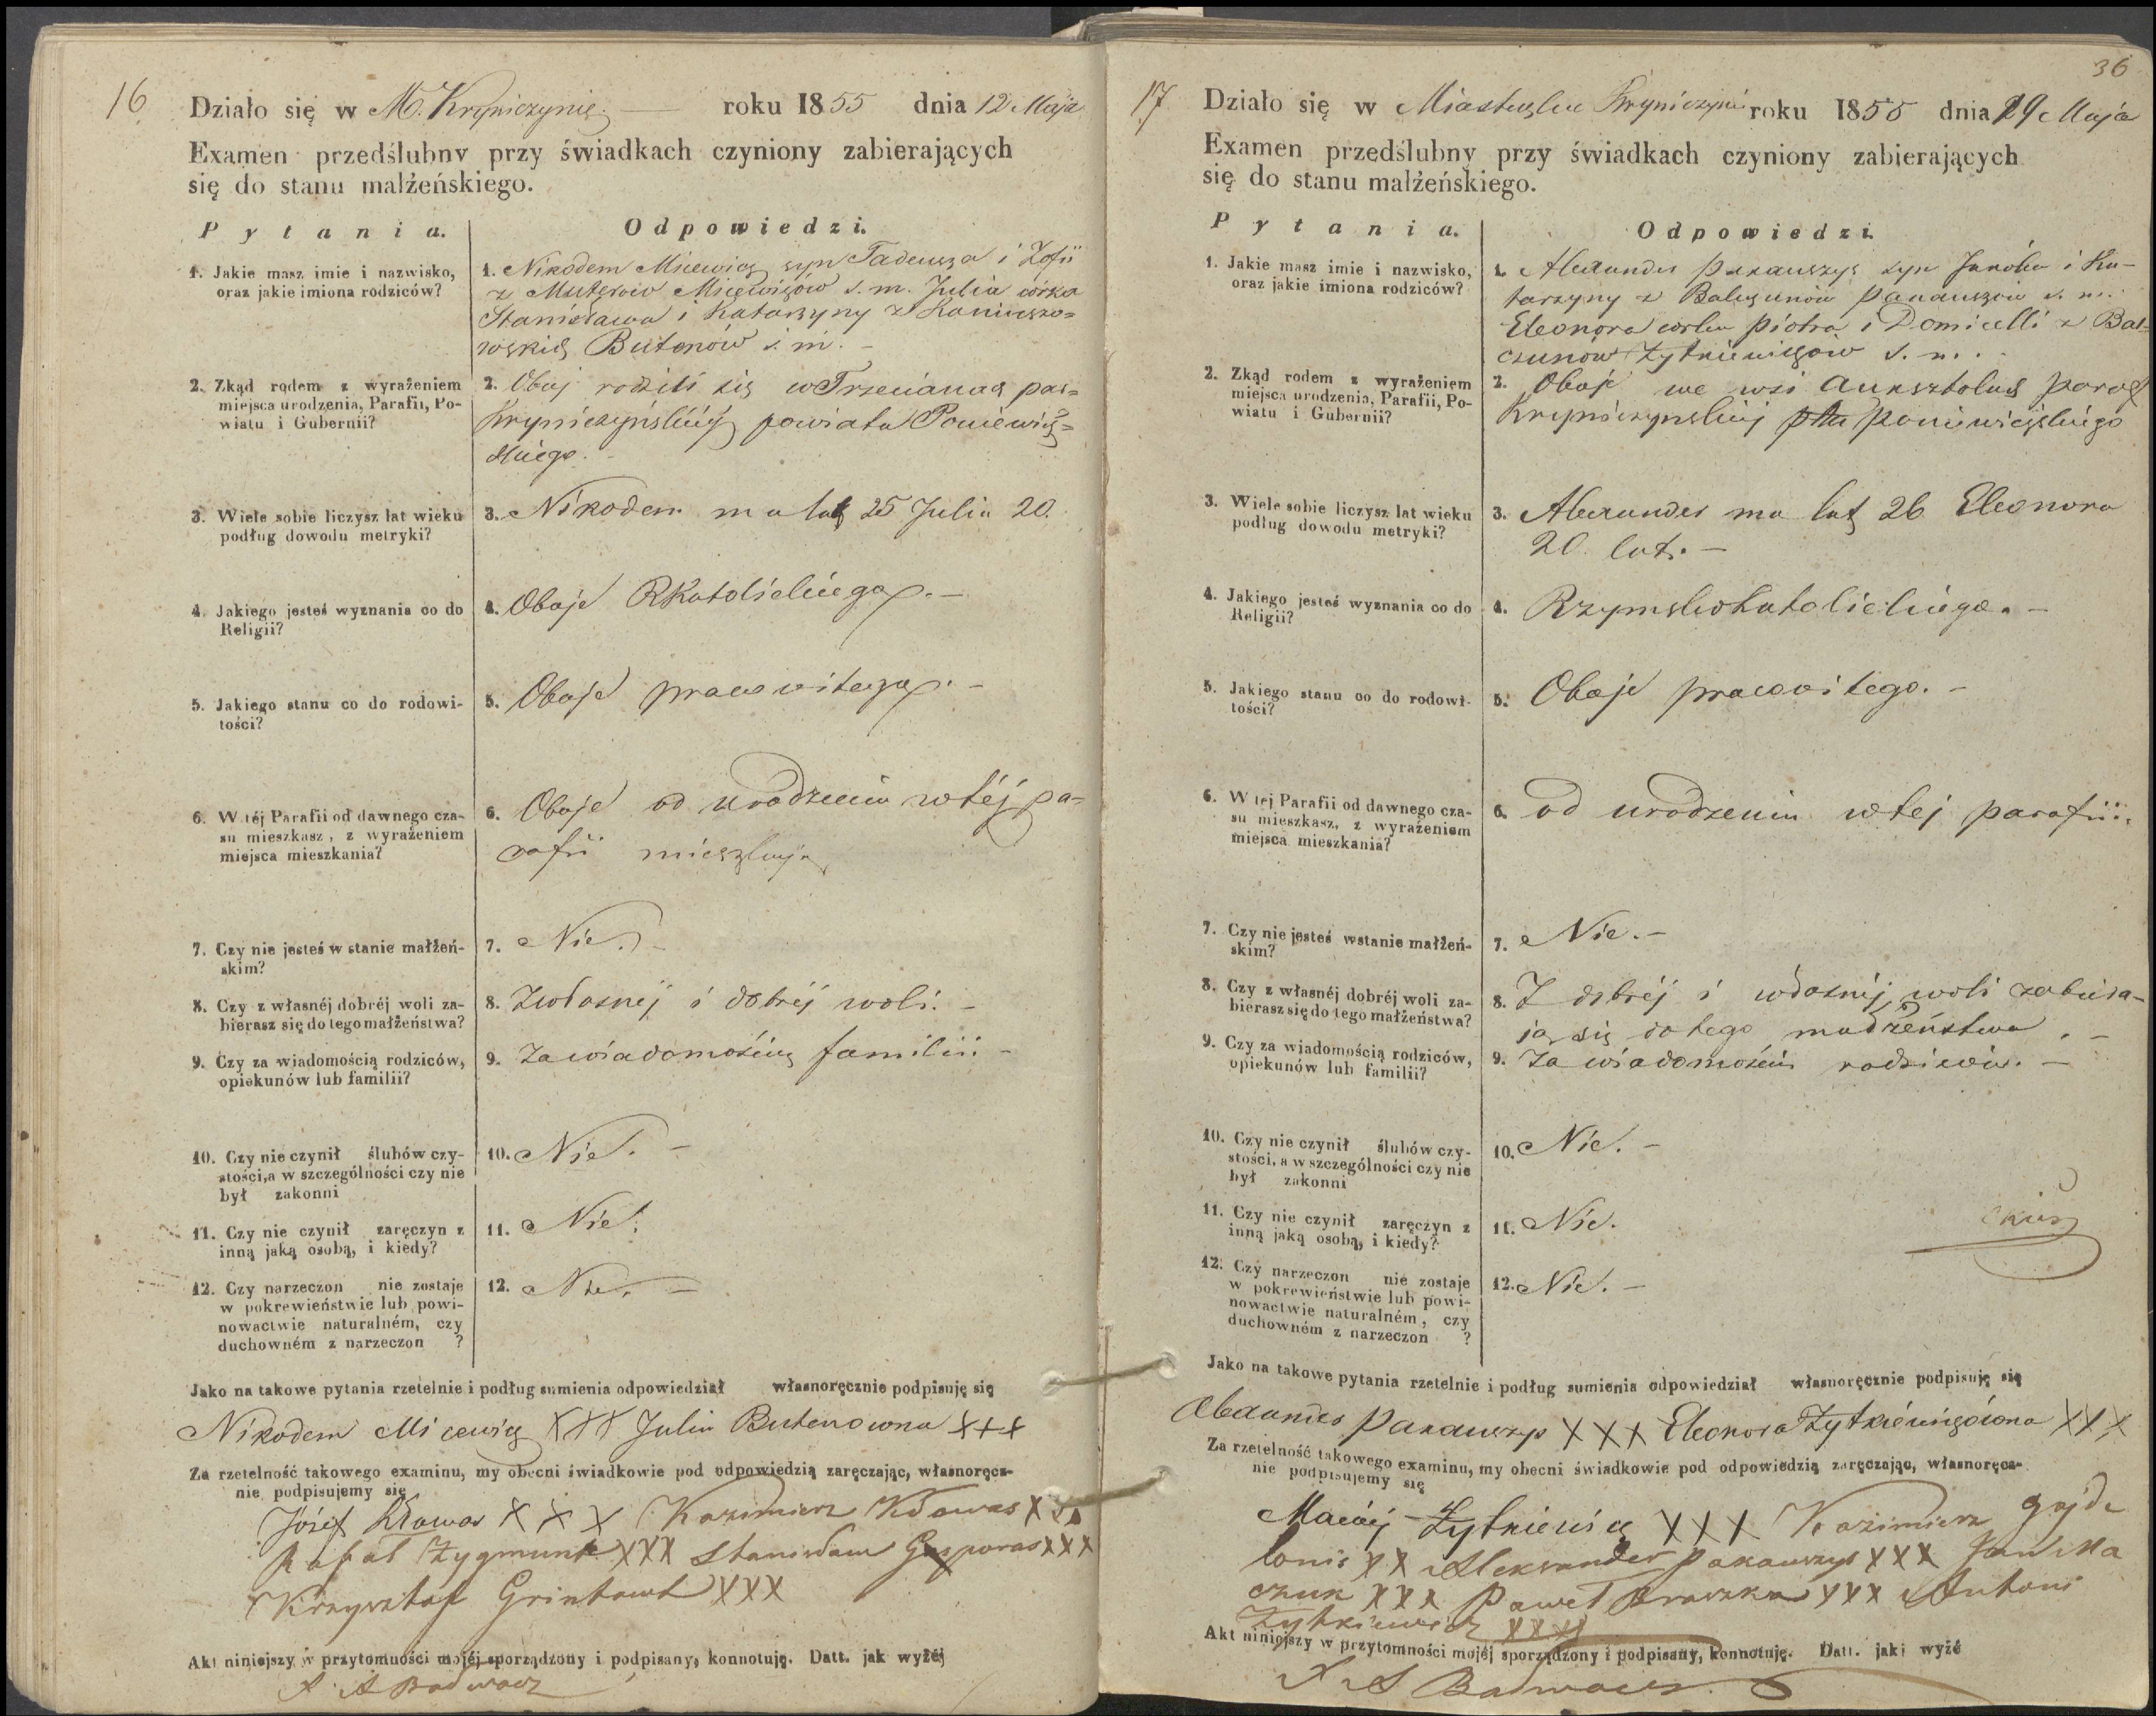 16
Działo się w M. Kryniczynie. — roku 1855 dnia 12 Maja
Examen przedślubny przy świadkach czyniony zabierających
się do stanu małżeńskiego.
Pytania. Odpowiedzi.
1. Jakie masz imie i nazwisko,
oraz jakie imiona rodziców?
1. Nikodem Micewicz syn Tadeusza i Zofii
z Micewiczów s. m. Julia córka
Stanisława i Katarzyny z
Butenów s. m. –
2. Zkąd rodem z wyrażeniem
miejsca urodzenia, Parafii, Po-
wiatu i Gubernii?
2. Oboje rodzili się w Trzecianach par=
Kryniczyńskiéj powiatu Poniewież=
skiego.
3. Wiele sobie liczysz lat wieku
podług dowodu metryki?
3. Nikodem ma lat 25 Julia 20.
4. Jakiego jesteś wyznania co do
Religii?
4. Oboje RKatolickiego. –
5. Jakiego stanu co do rodowi-
tości?
5. Oboje pracowitego. –
6. W téj Parafii od dawnego cza-
su mieszkasz, z wyrażeniem
miejsca mieszkania?
6. Oboje od urodzenia w téj pa=
rafii mieszkają
7. Czy nie jesteś w stanie małżeń-
skim?
7. Nie. –
8. Czy z własnéj dobréj woli za-
bierasz się do tego małżeństwa?
8. Zwłasnéj i dobréj woli. –
9. Czy za wiadomością rodziców,
opiekunów lub familii?
9. Za wiadomością familii. –
10. Czy nie czynił ślubów czy-
stości, a w szczególności czy nie
był zakonni
10. Nie. –
11. Czy nie czynił zaręczyn z
inną jaką osobą, i kiedy?
11. Nie.
12. Czy narzeczon nie zostaje
w pokrewieństwie lub powi-
nowactwie naturalném, czy
duchowném z narzeczon ?
12. Nie. –
Jako na takowe pytania rzetelnie i podług sumienia odpowiedział własnoręcznie podpisuję się
Nikodem Micewicz XXX Julia Butenowna XXX
Za rzetelność takowego examinu, my obecni świadkowie pod odpowiedzią zaręczając, własnoręcz-
nie podpisujemy się
Józef Kławas X X X Kazimierz Kławas XXX
Rafał Zygmunt XXX Stanisław Gasparas XXX
Krzysztof Grintowt XXX
Akt niniejszy w przytomności mojéj sporządzony i podpisany, konnotuję. Datt. jak wyżéj
36
17
Działo się w Miasteczku Krynicznie roku 1855 dnia 29 Maja
Examen przedślubny przy świadkach czyniony zabierających
się do stanu małżeńskiego.
Pytania. Odpowiedzi.
1. Jakie masz imie i nazwisko,
oraz jakie imiona rodziców?
1. Alexander Pakauszys syn Jakóba i Ka-
tarzyny z Balczunów Pakauszów s. m.
Eleonora córka Piotra i Domicelli z Bal-
czunów Żytkiewiczów s. m.
2. Zkąd rodem z wyrażeniem
miejsca urodzenia, Parafii, Po-
wiatu i Gubernii?
2. Oboje we wsi Auksztolach paraf
Krynczynskiej ptu Poniewiezskiego
3. Wiele sobie liczysz lat wieku
podług dowodu metryki?
3. Alexander ma lat 26 Eleonora
20 lat. –
4. Jakiego jesteś wyznania co do
Religii?
4. Rzymskokatolickiego. –
5. Jakiego stanu co do rodowi-
tości?
5. Oboje pracowitego. –
6. W tej Parafii od dawnego cza-
su mieszkasz, z wyrażeniem
miejsca mieszkania?
6. od urodzenia w tej parafii.
7. Czy nie jesteś wstanie małżeń-
skim?
7. Nie. –
8. Czy z własnéj dobréj woli za-
bierasz się do tego małżeństwa?
8. Z dobréj i własnéj woli zabiera-
ją się do tego małżeństwa. –
9. Czy za wiadomością rodziców,
opiekunów lub familii?
9. Za wiadomością rodziców. –
10. Czy nie czynił ślubów czy-
stości, a w szczególności czy nie
był zakonni
10. Nie. –
11. Czy nie czynił zaręczyn z
inną jaką osobą, i kiedy?
11. Nie.
12. Czy narzeczon nie zostaje
w pokrewieństwie lub powi-
nowactwie naturalném, czy
duchowném z narzeczon ?
12. Nie. –
Jako na takowe pytania rzetelnie i podług sumienia odpowiedział własnoręcznie podpisuję się
Alexander Pakauszys XXX Eleonora Żytkiewiczówna XXX
Za rzetelność takowego examinu, my obecni świadkowie pod odpowiedzią zaręczając, własnoręcz-
nie podpisujemy się
Maciej Żytkiewicz XXX Kazimierz Gajde
lonis XX Aleksander Pakauszys XXX Jan Ma
czuk XXX Paweł Braszka XXX Antoni
Żytkiewicz XXX
Akt niniejszy w przytomności mojéj sporządzony i podpisany, konnotuję. Datt. jak wyżé